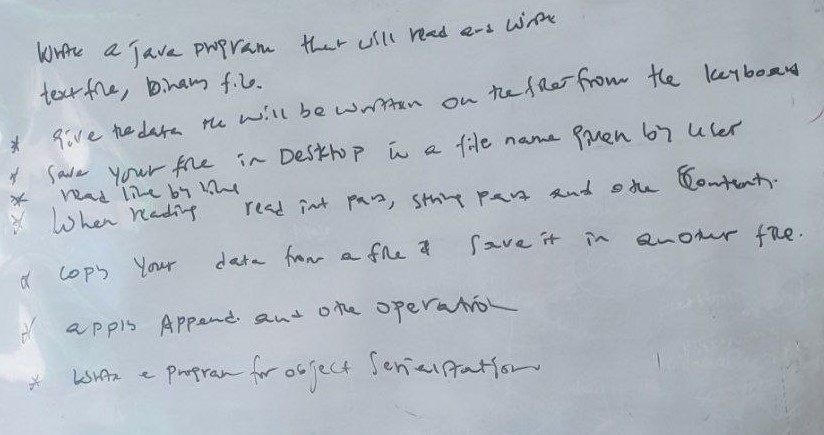 Write a java program that will read and write
text file, binary file.
* Give the data the will be written on the file from the keyboard
* Save your file in Desktop in a file name given by user
* read line by line
* When reading read int part, string part and othe Contents.
* Copy Your data from a file & Save it in another file.
* apply Append and othe operation
* Write a program for object Serialization